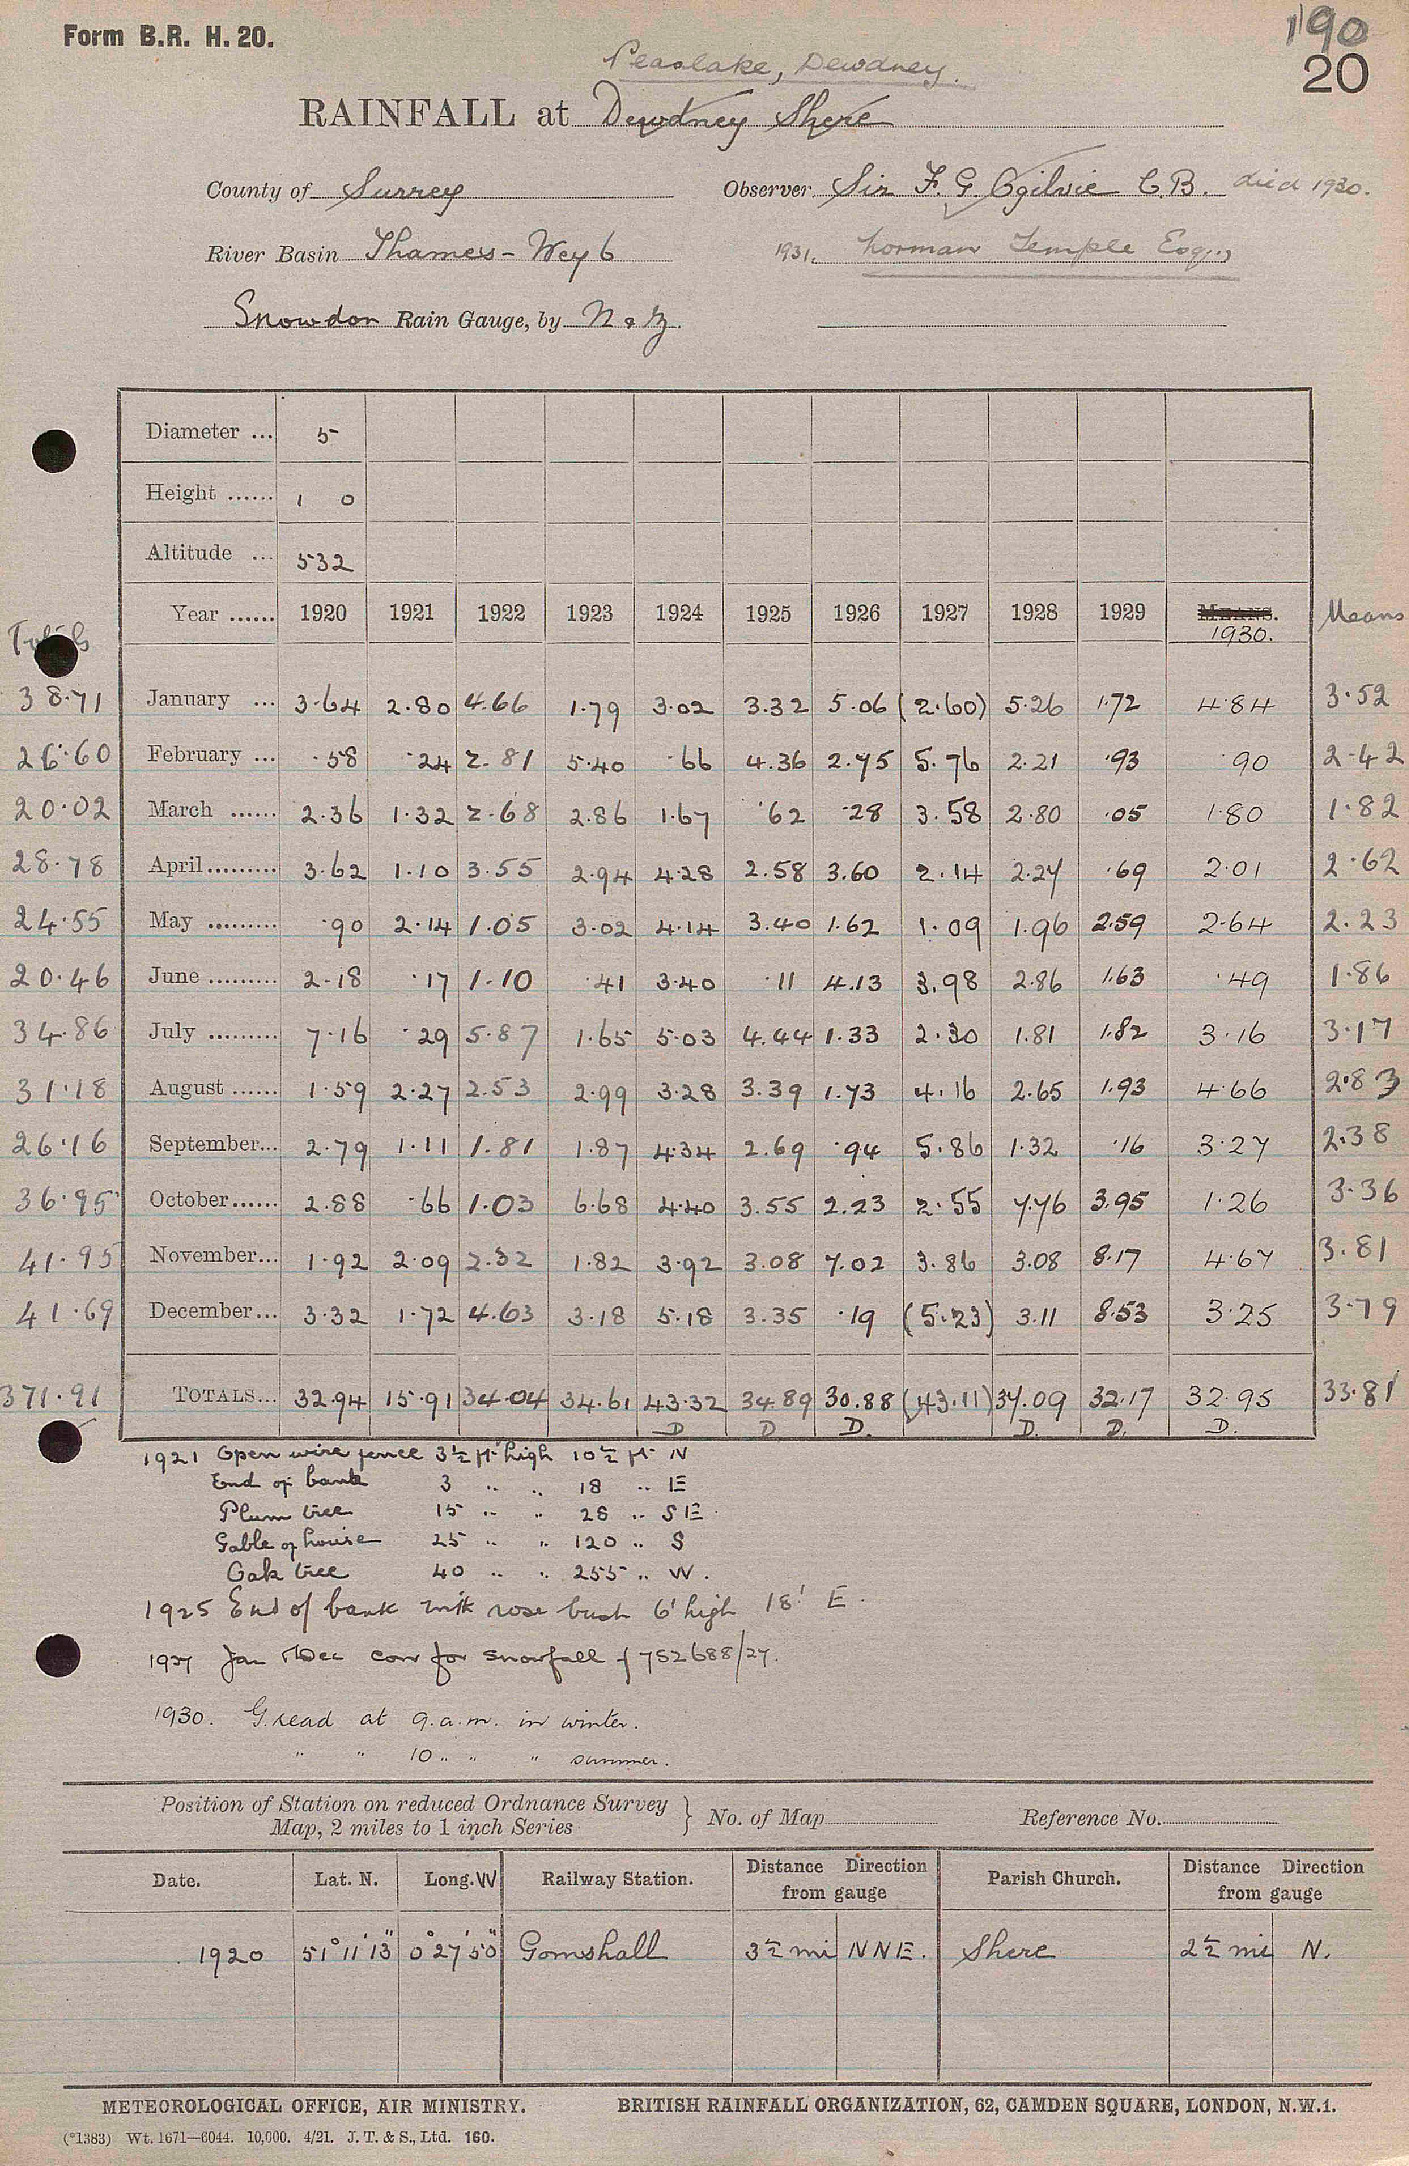 Form B.R. H. 20.
190
20
Peaslake, Dewdney.
RAINFALL at Dewdney Shere
County of Surrey Observer Sir F. G. Ogilvie C.B. died 1930.
River Basin Thames - Wey 6 1931. Norman Temple Esq.,
Snowdon Rain Gauge, by N & Z.
Diameter ... 5
Height ...... 1 0
Altitude ... 532
Totals Year ...... 1920 1921 1922 1923 1924 1925 1926 1927 1928 1929 MEANS. 1930. Means
38.71 January ... 3.64 2.80 4.66 1.79 3.02 3.32 5.06 (2.60) 5.26 1.72 4.84 3.52
26.60 February ... .58 .24 2.81 5.40 .66 4.36 2.75 5.76 2.21 .93 .90 2.42
20.02 March ...... 2.36 1.32 2.68 2.86 1.67 .62 .28 3.58 2.80 .05 1.80 1.82
28.78 April......... 3.62 1.10 3.55 2.94 4.28 2.58 3.60 2.14 2.27 .69 2.01 2.62
24.55 May ......... .90 2.14 1.05 3.02 4.14 3.40 1.62 1.09 1.96 2.59 2.64 2.23
20.46 June ......... 2.18 .17 1.10 .41 3.40 .11 4.13 3.98 2.86 1.63 .49 1.86
34.86 July ......... 7.16 .29 5.87 1.65 5.03 4.44 1.33 2.30 1.81 1.82 3.16 3.17
31.18 August ...... 1.59 2.27 2.53 2.99 3.28 3.39 1.73 4.16 2.65 1.93 4.66 2.83
26.16 September... 2.79 1.11 1.81 1.87 4.34 2.69 .94 5.86 1.32 .16 3.27 2.38
36.95 October...... 2.88 .66 1.03 6.68 4.40 3.55 2.23 2.55 7.76 3.95 1.26 3.36
41.95 November... 1.92 2.09 2.32 1.82 3.92 3.08 7.02 3.86 3.08 8.17 4.67 3.81
41.69 December... 3.32 1.72 4.63 3.18 5.18 3.35 .19 (5.23) 3.11 8.53 3.25 3.79
371.91 TOTALS... 32.94 15.91 34.04 34.61 43.32 34.89 30.88 (43.11) 37.09 32.17 32.95 33.81
D D D. D. D. D.
1921 Open wire fence 3½ ft high 10½ ft N
End of bank 3 " " 18 " E
Plum tree 15 " " 28 " SE
Gable of house 25 " " 120 " S
Oak tree 40 " " 255 " W.
1925 End of bank with rose bush 6' high 18' E.
1927 Jan Dec corr for snowfall f 752688/27.
1930. G. read at 9 a.m. in winter.
" " 10 " " " summer.
Position of Station on reduced Ordnance Survey Map, 2 miles to 1 inch Series } No. of Map Reference No.
Date. Lat. N. Long. W Railway Station. Distance Direction from gauge Parish Church. Distance Direction from gauge
1920 51° 11' 13" 0° 27' 50" Gomshall 3½ mi NNE. Shere 2½ mi N.
METEOROLOGICAL OFFICE, AIR MINISTRY. BRITISH RAINFALL ORGANIZATION, 62, CAMDEN SQUARE, LONDON, N.W.1.
(*1383) Wt. 1671—6044. 10,000. 4/21. J. T. & S., Ltd. 160.